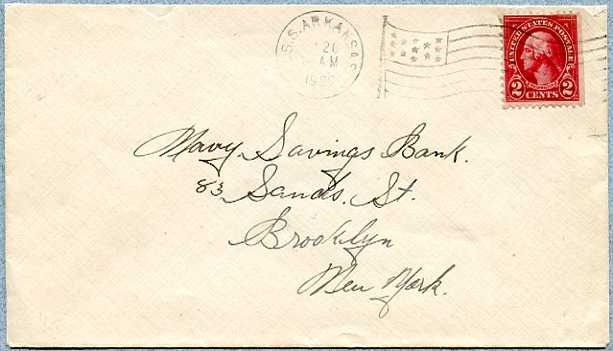 U.S.S. ARKANSAS
20
AM
UNITED STATES POSTAGE
2 CENTS 2
Navy Savings Bank.
83 Sands. St.
Brooklyn
New York.